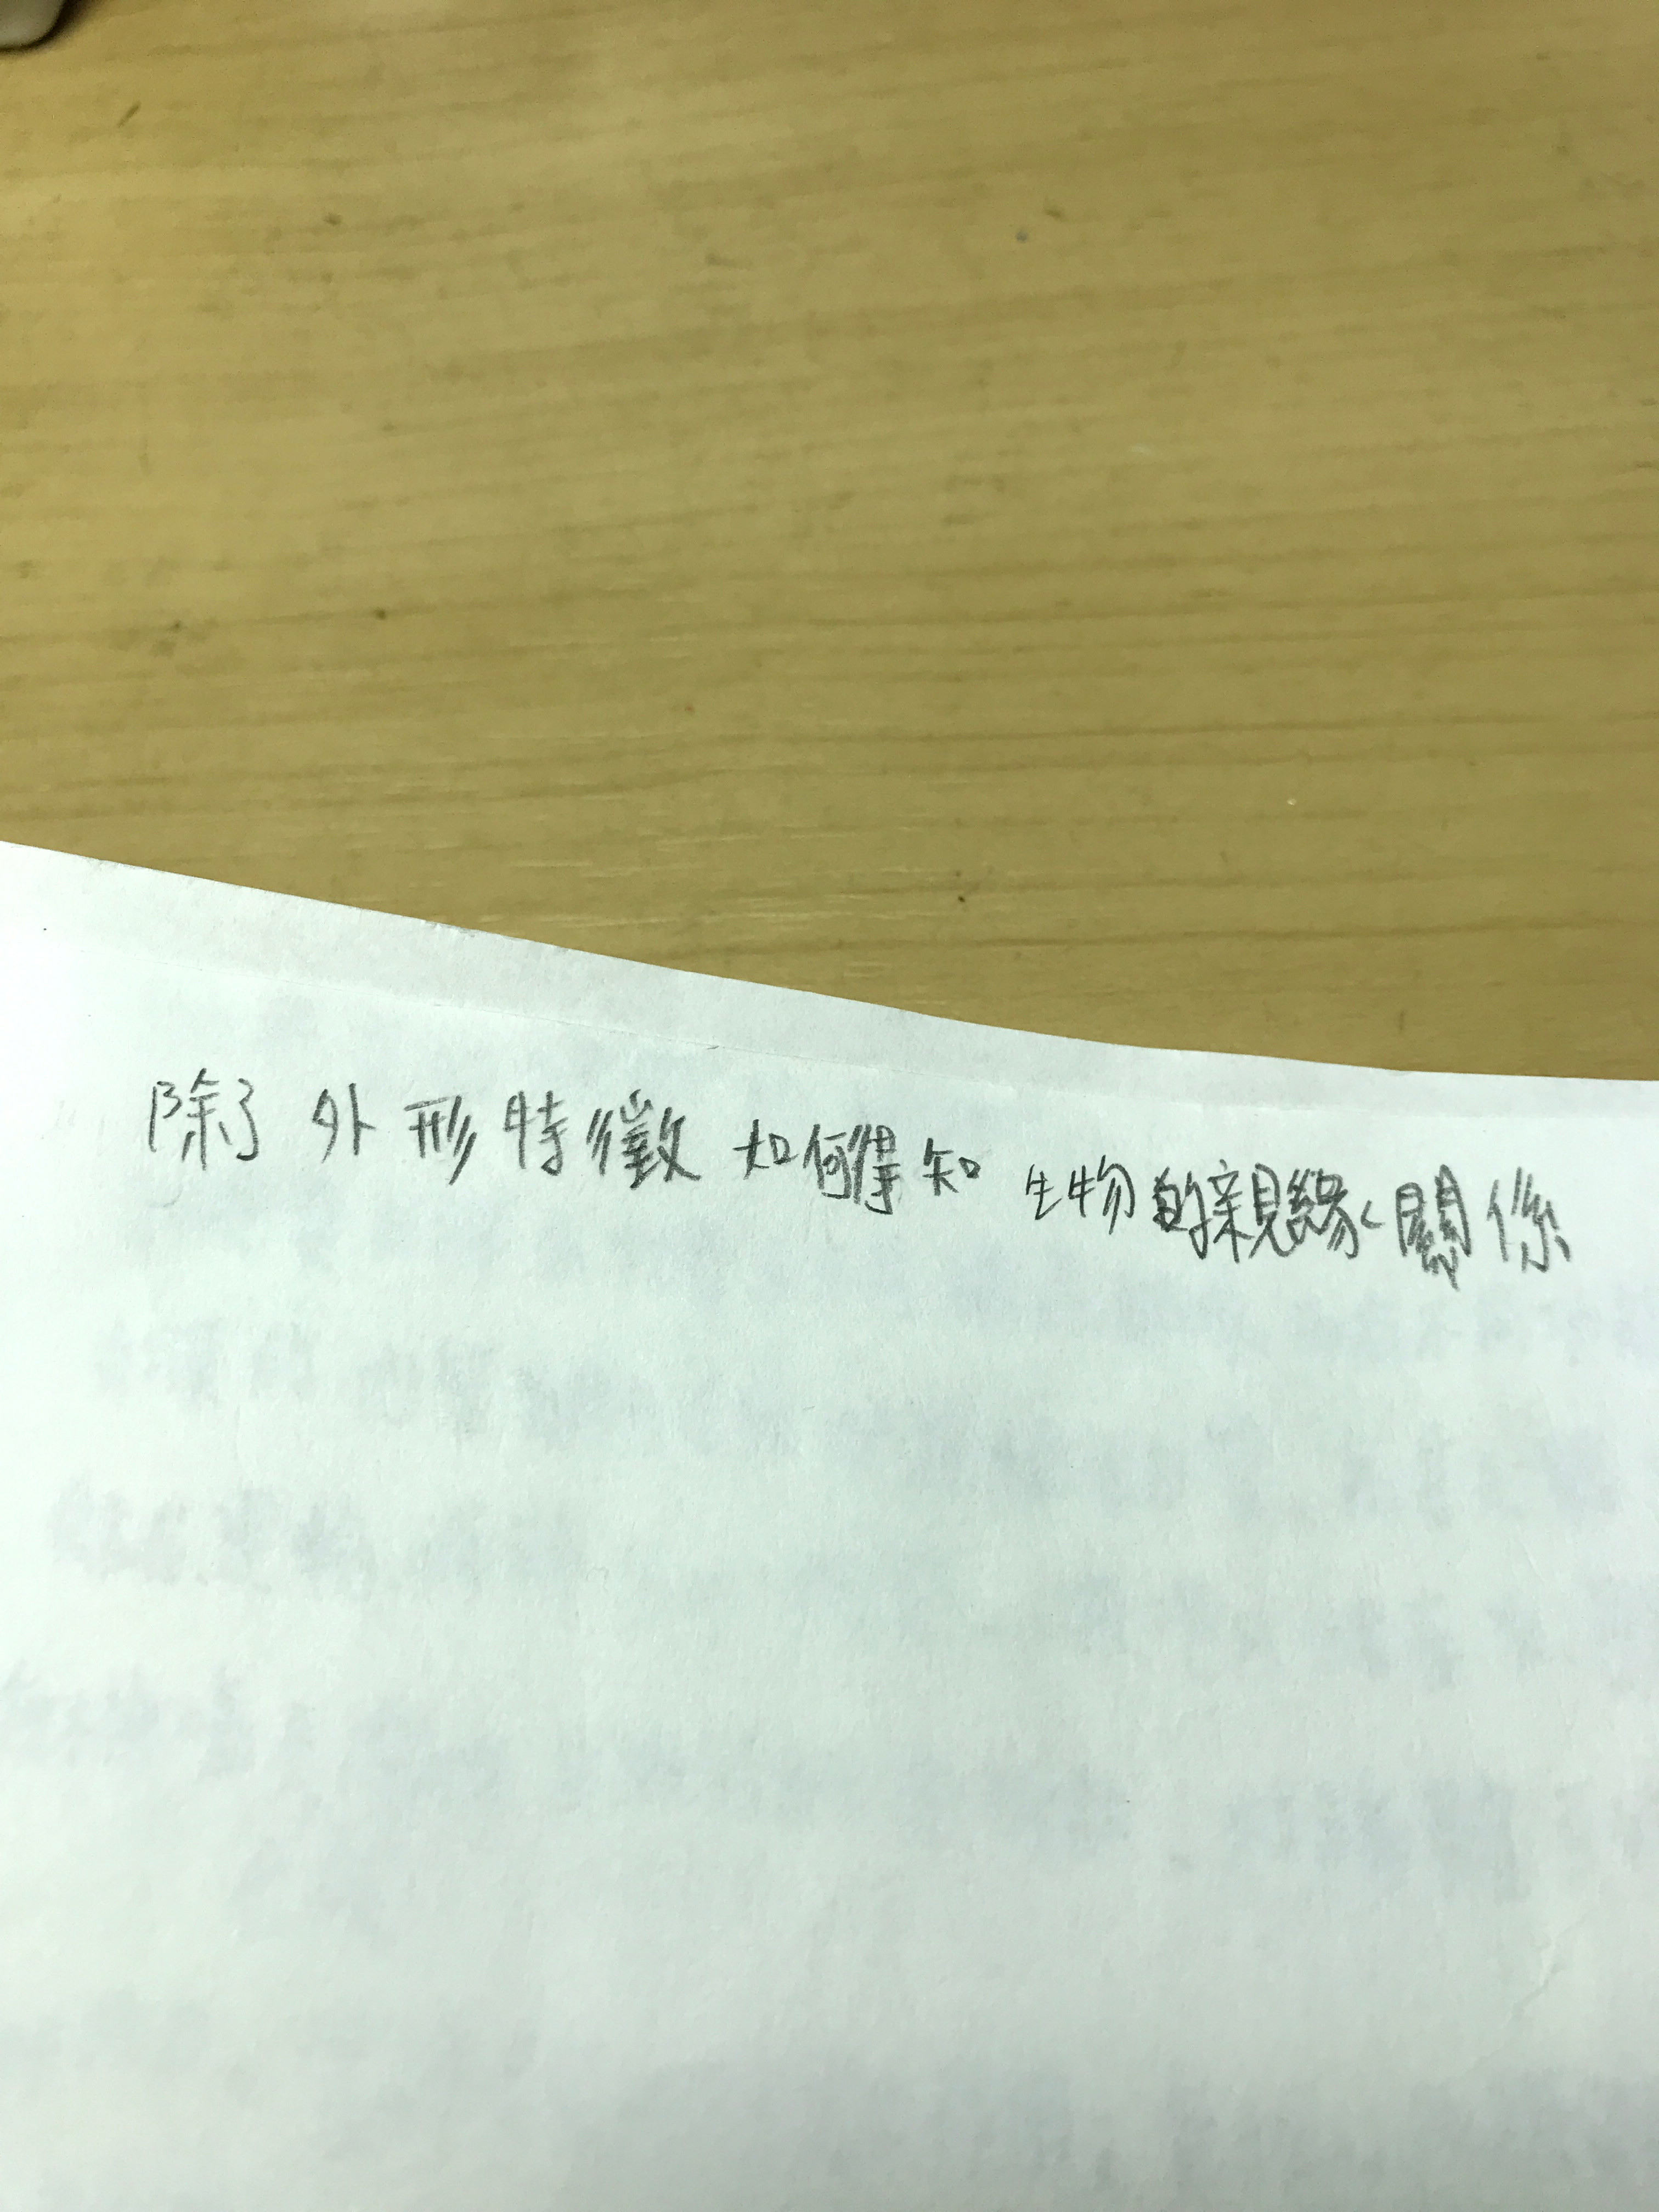 除了外形特徵如何得知生物的親緣關係